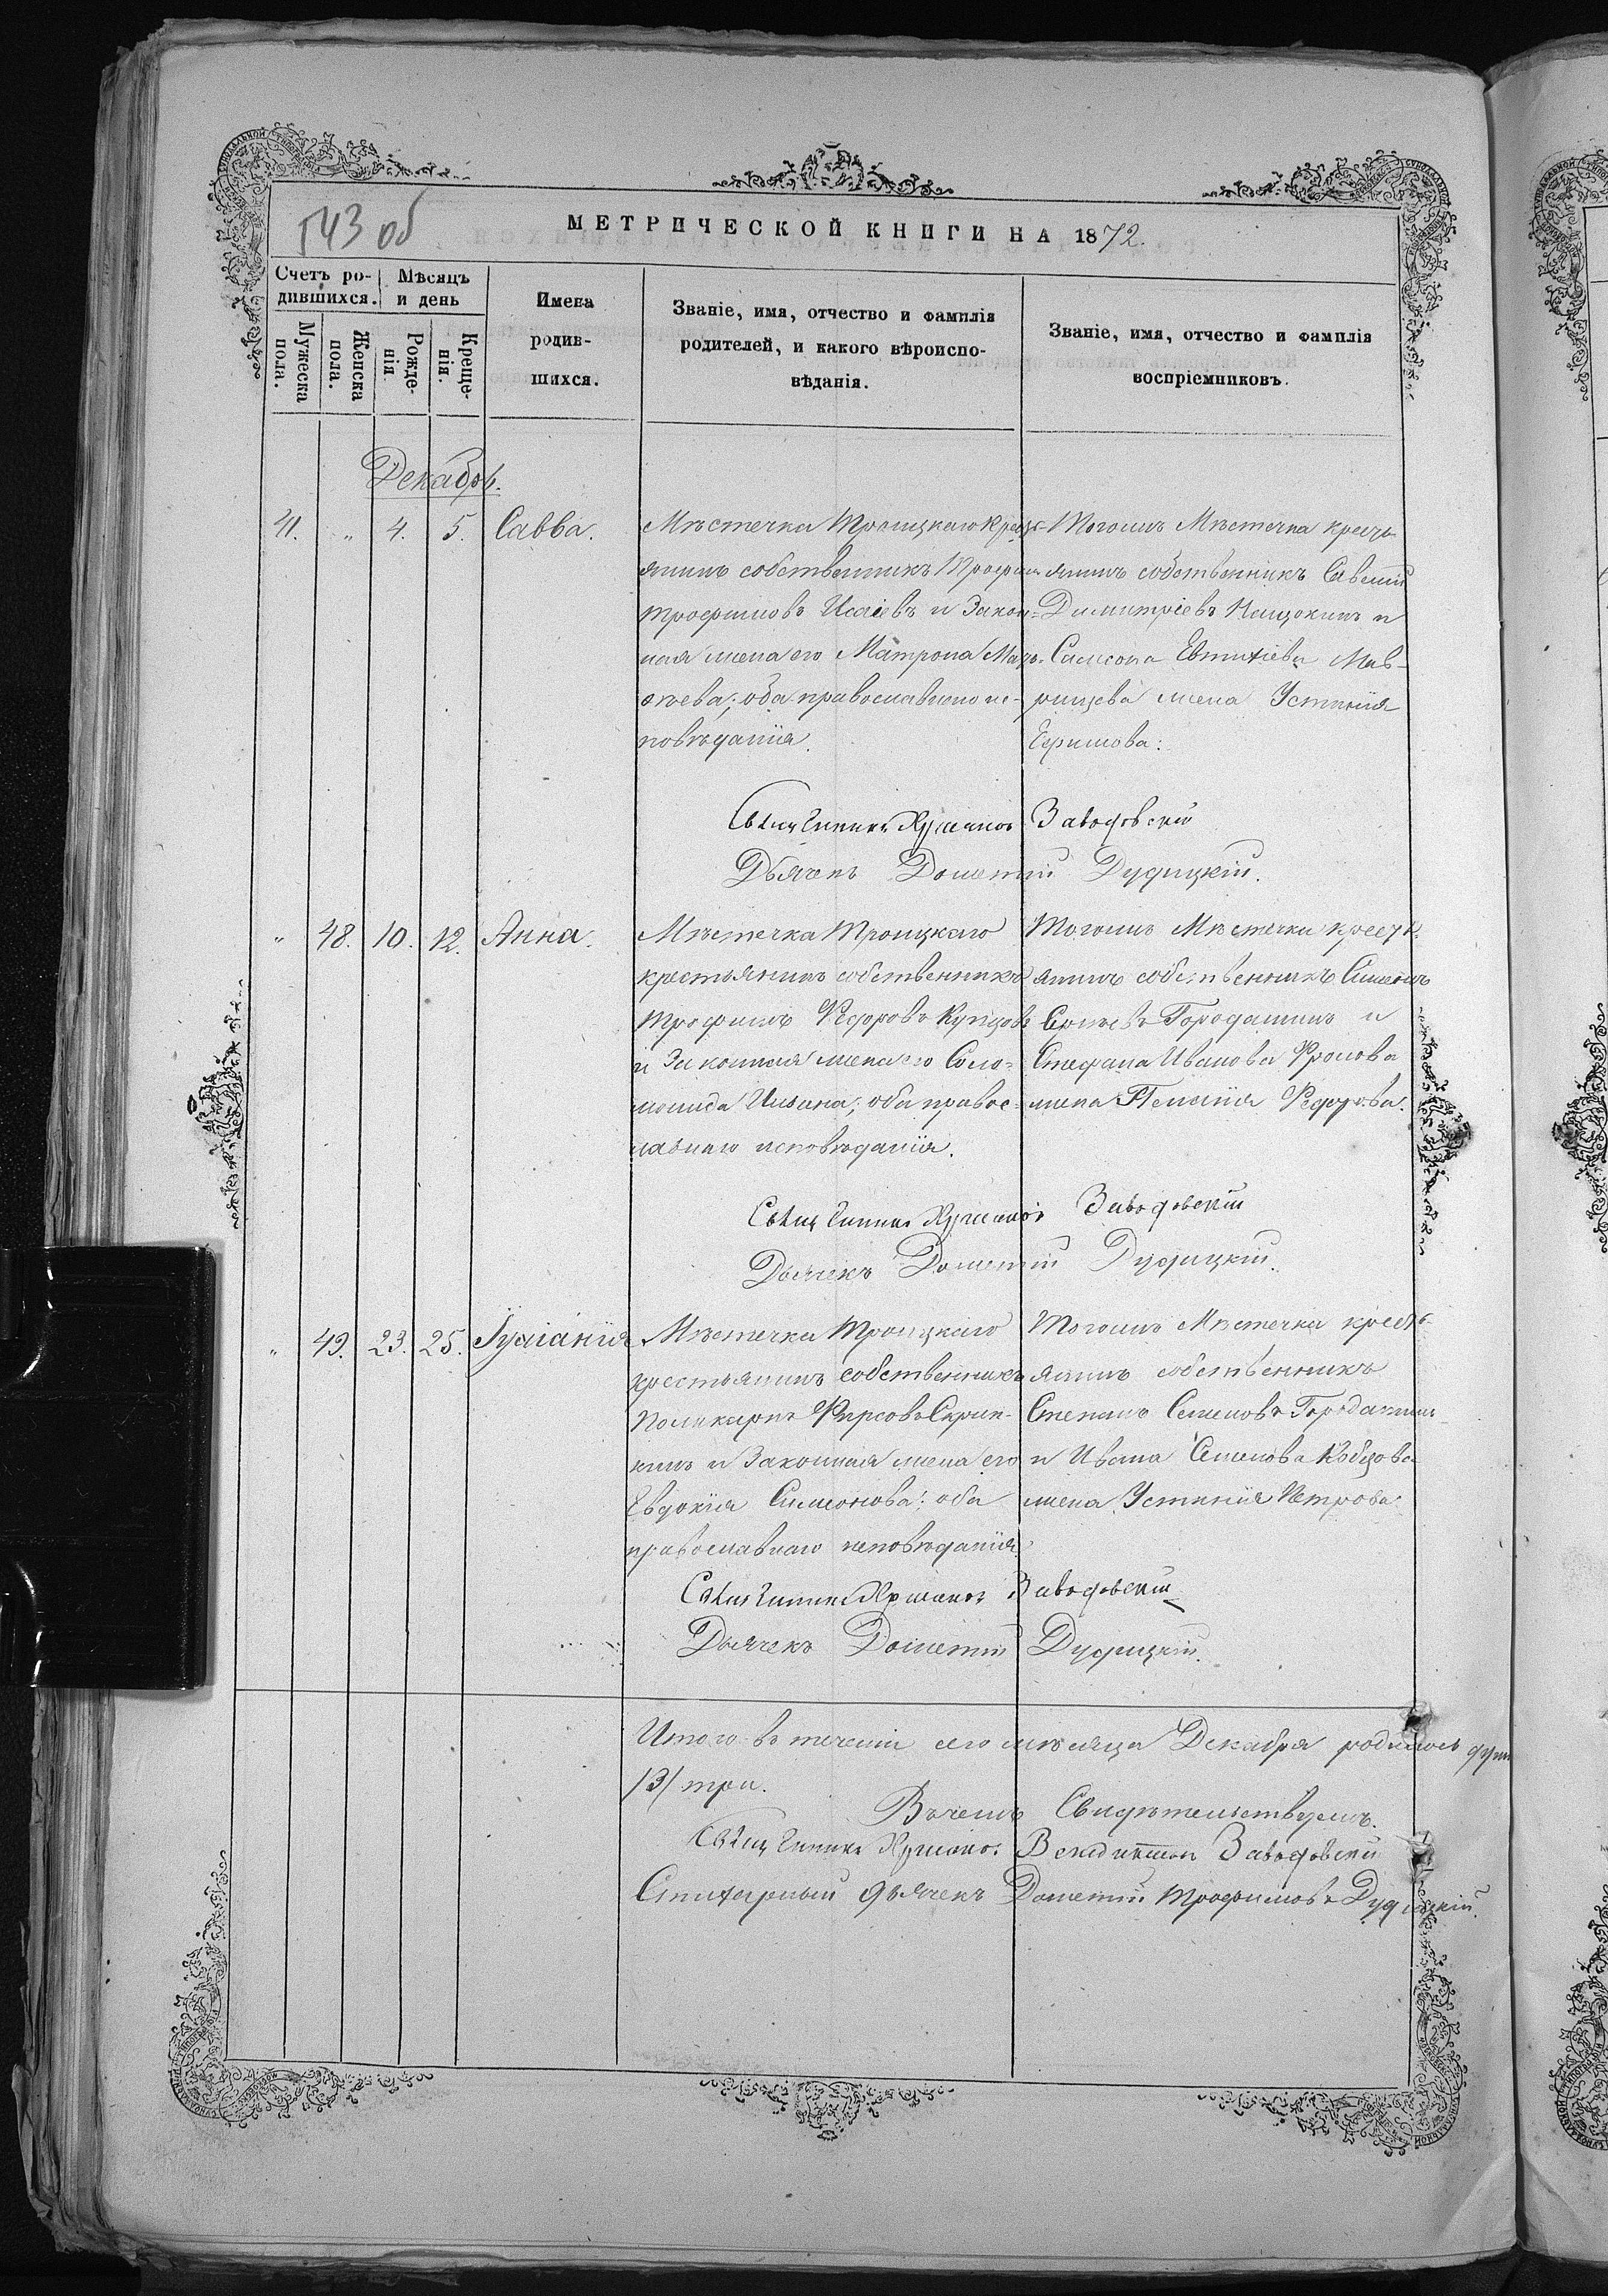 143 об
МЕТРИЧЕСКОЙ КНИГИ НА 1872.
Счетъ ро-
дившихся.
Мѣсяцъ
и день
Мужеска
пола.
Женска
пола.
Рожде-
нія.
Креще-
нія.
Имена
родив-
шихся.
Званіе, имя, отчество и фамилія
родителей, и какого вѣроиспо-
вѣданія.
Званіе, имя, отчество и фамилія
воспріемниковъ.
Декабрь.
41. " 4. 5. Савва.
Мѣстечка Троицкаго кресть-
янинъ собственникъ Трофим
Трофимовъ Исаіевъ и Закон-
ная жена его Матрона
оба православнаго ис-
повѣданія.
Тогожъ Мѣстечка кресть-
янинъ собственникъ Савелій
Димитріевъ Нащокинъ и
Самсона Евтихіева Мав-
рицева жена Устинія
Ефимова:
Священникъ Заводовскій
Дьячекъ Дометій Дудицкій.
" 48. 10. 12. Анна.
Мѣстечка Троицкаго
крестьянинъ собственникъ
Трофимъ Федоровъ Купцовъ
и Законная жена его Соло-
монида Ильина; оба правос-
лавнаго исповѣданія.
Тогожъ Мѣстечка кресть-
янинъ собственникъ Симеонъ
Городанинъ и
Стефана Иванова Фролова
жена Пелагія Федорова.
Священникъ Заводовскій
Дьячекъ Дометій Дудицкій.
" 49. 23. 25. Іуліанія
Мѣстечка Троицкаго
крестьянинъ собственникъ
Поликарпъ Фирсовъ Скрип-
кинъ и Законная жена его
Евдокія Симеонова: оба
православнаго исповѣданія.
Тогожъ Мѣстечка кресть-
янинъ собственникъ
Степанъ Семеновъ Городанинъ
и Ивана Семенова Кобцова
жена Устинія Петрова.
Священникъ Заводовскій
Дьячекъ Дометій Дудицкій.
Итого въ теченіи сего мѣсяца Декабря родилось душъ
/3/ три.
Въ чемъ Свидѣтельствуемъ.
Священникъ Заводовскій
Стихарный дьячекъ Дометій Трофимовъ Дудицкій.